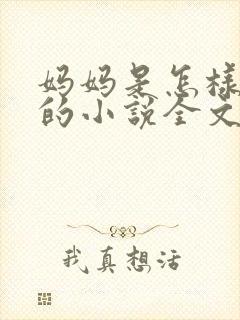 妈妈是怎样
的小说全文
我真想活